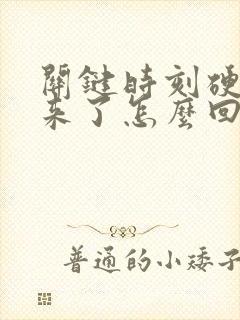 關鍵時刻硬
來了怎麼回
普通的小矮子